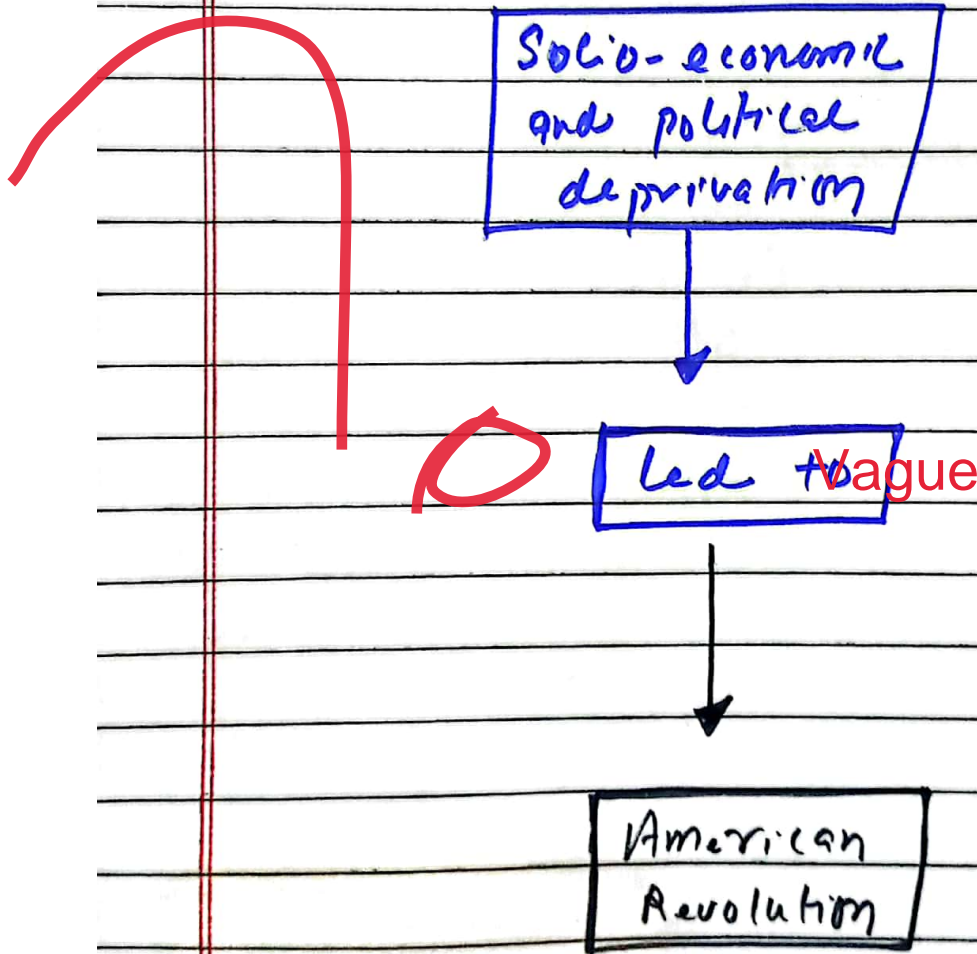 Socio-economic
and political
deprivation
Led to
Vague
American
Revolution